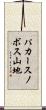 バカースノ
ボス山地